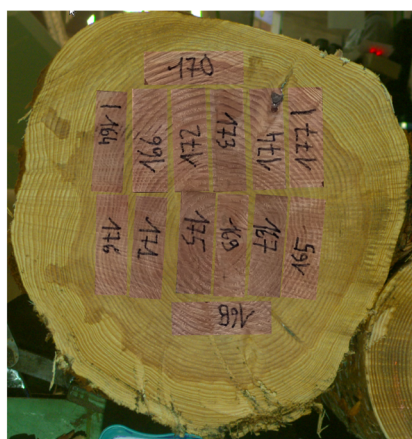 170
164 166 172 173 174 177
176 171 175 169 167 165
168